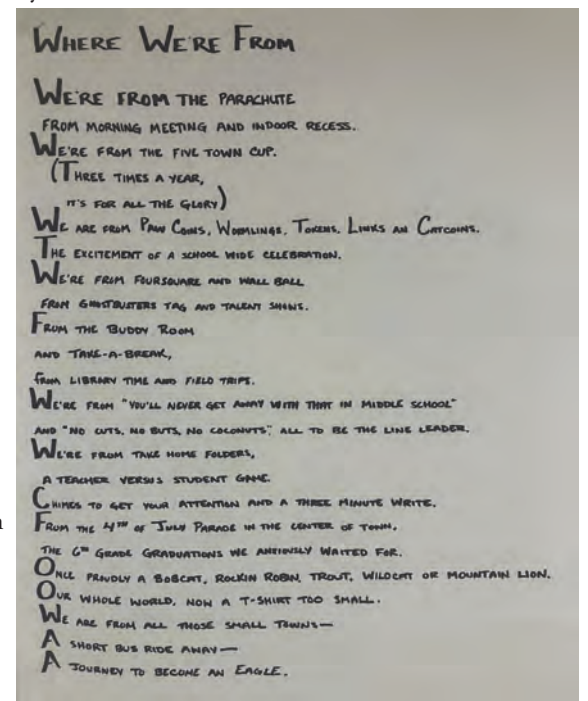 WHERE WE'RE FROM
WE'RE FROM THE PARACHUTE
FROM MORNING MEETING AND INDOOR RECESS.
WE'RE FROM THE FIVE TOWN CUP.
(THREE TIMES A YEAR,
IT'S FOR ALL THE GLORY)
WE ARE FROM PAW COINS, WORMLINGS, TOKENS, LINKS AN CATCOINS.
THE EXCITEMENT OF A SCHOOL WIDE CELEBRATION.
WE'RE FROM FOURSQUARE AND WALL BALL
FROM GHOSTBUSTERS TAG AND TALENT SHOWS.
FROM THE BUDDY ROOM
AND TAKE-A-BREAK,
FROM LIBRARY TIME AND FIELD TRIPS.
WE'RE FROM "YOU'LL NEVER GET AWAY WITH THAT IN MIDDLE SCHOOL"
AND "NO CUTS, NO BUTS, NO COCONUTS", ALL TO BE THE LINE LEADER.
WE'RE FROM TAKE HOME FOLDERS,
A TEACHER VERSUS STUDENT GAME.
CHIMES TO GET YOUR ATTENTION AND A THREE MINUTE WRITE.
FROM THE 4TH OF JULY PARADE IN THE CENTER OF TOWN,
THE 6TH GRADE GRADUATIONS WE ANXIOUSLY WAITED FOR.
ONCE PROUDLY A BOBCAT, ROCKIN ROBIN, TROUT, WILDCAT OR MOUNTAIN LION.
OUR WHOLE WORLD, NOW A T-SHIRT TOO SMALL.
WE ARE FROM ALL THOSE SMALL TOWNS—
A SHORT BUS RIDE AWAY—
A JOURNEY TO BECOME AN EAGLE.